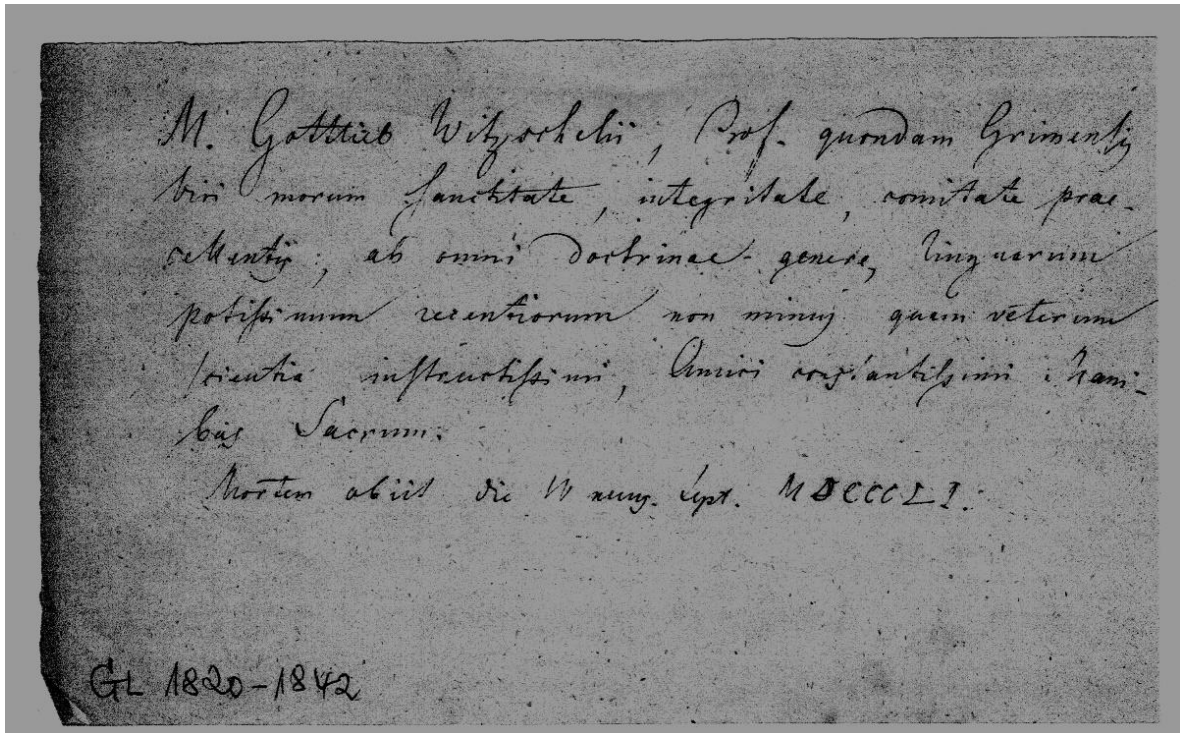 M. Gottlieb Witzschelii, Prof. quondam Grimensis
viri morum sanctitate, integritate, comitate prae-
cellentis, ab omni doctrinae genere, linguarum
potissimum recentiorum non minus quam veterum
scientia instructissimi, Amici constantissimi Mani-
bus Sacrum.
Mortem obiit die IV nonas. Sept. MDCCCLI.
GL 1820-1842